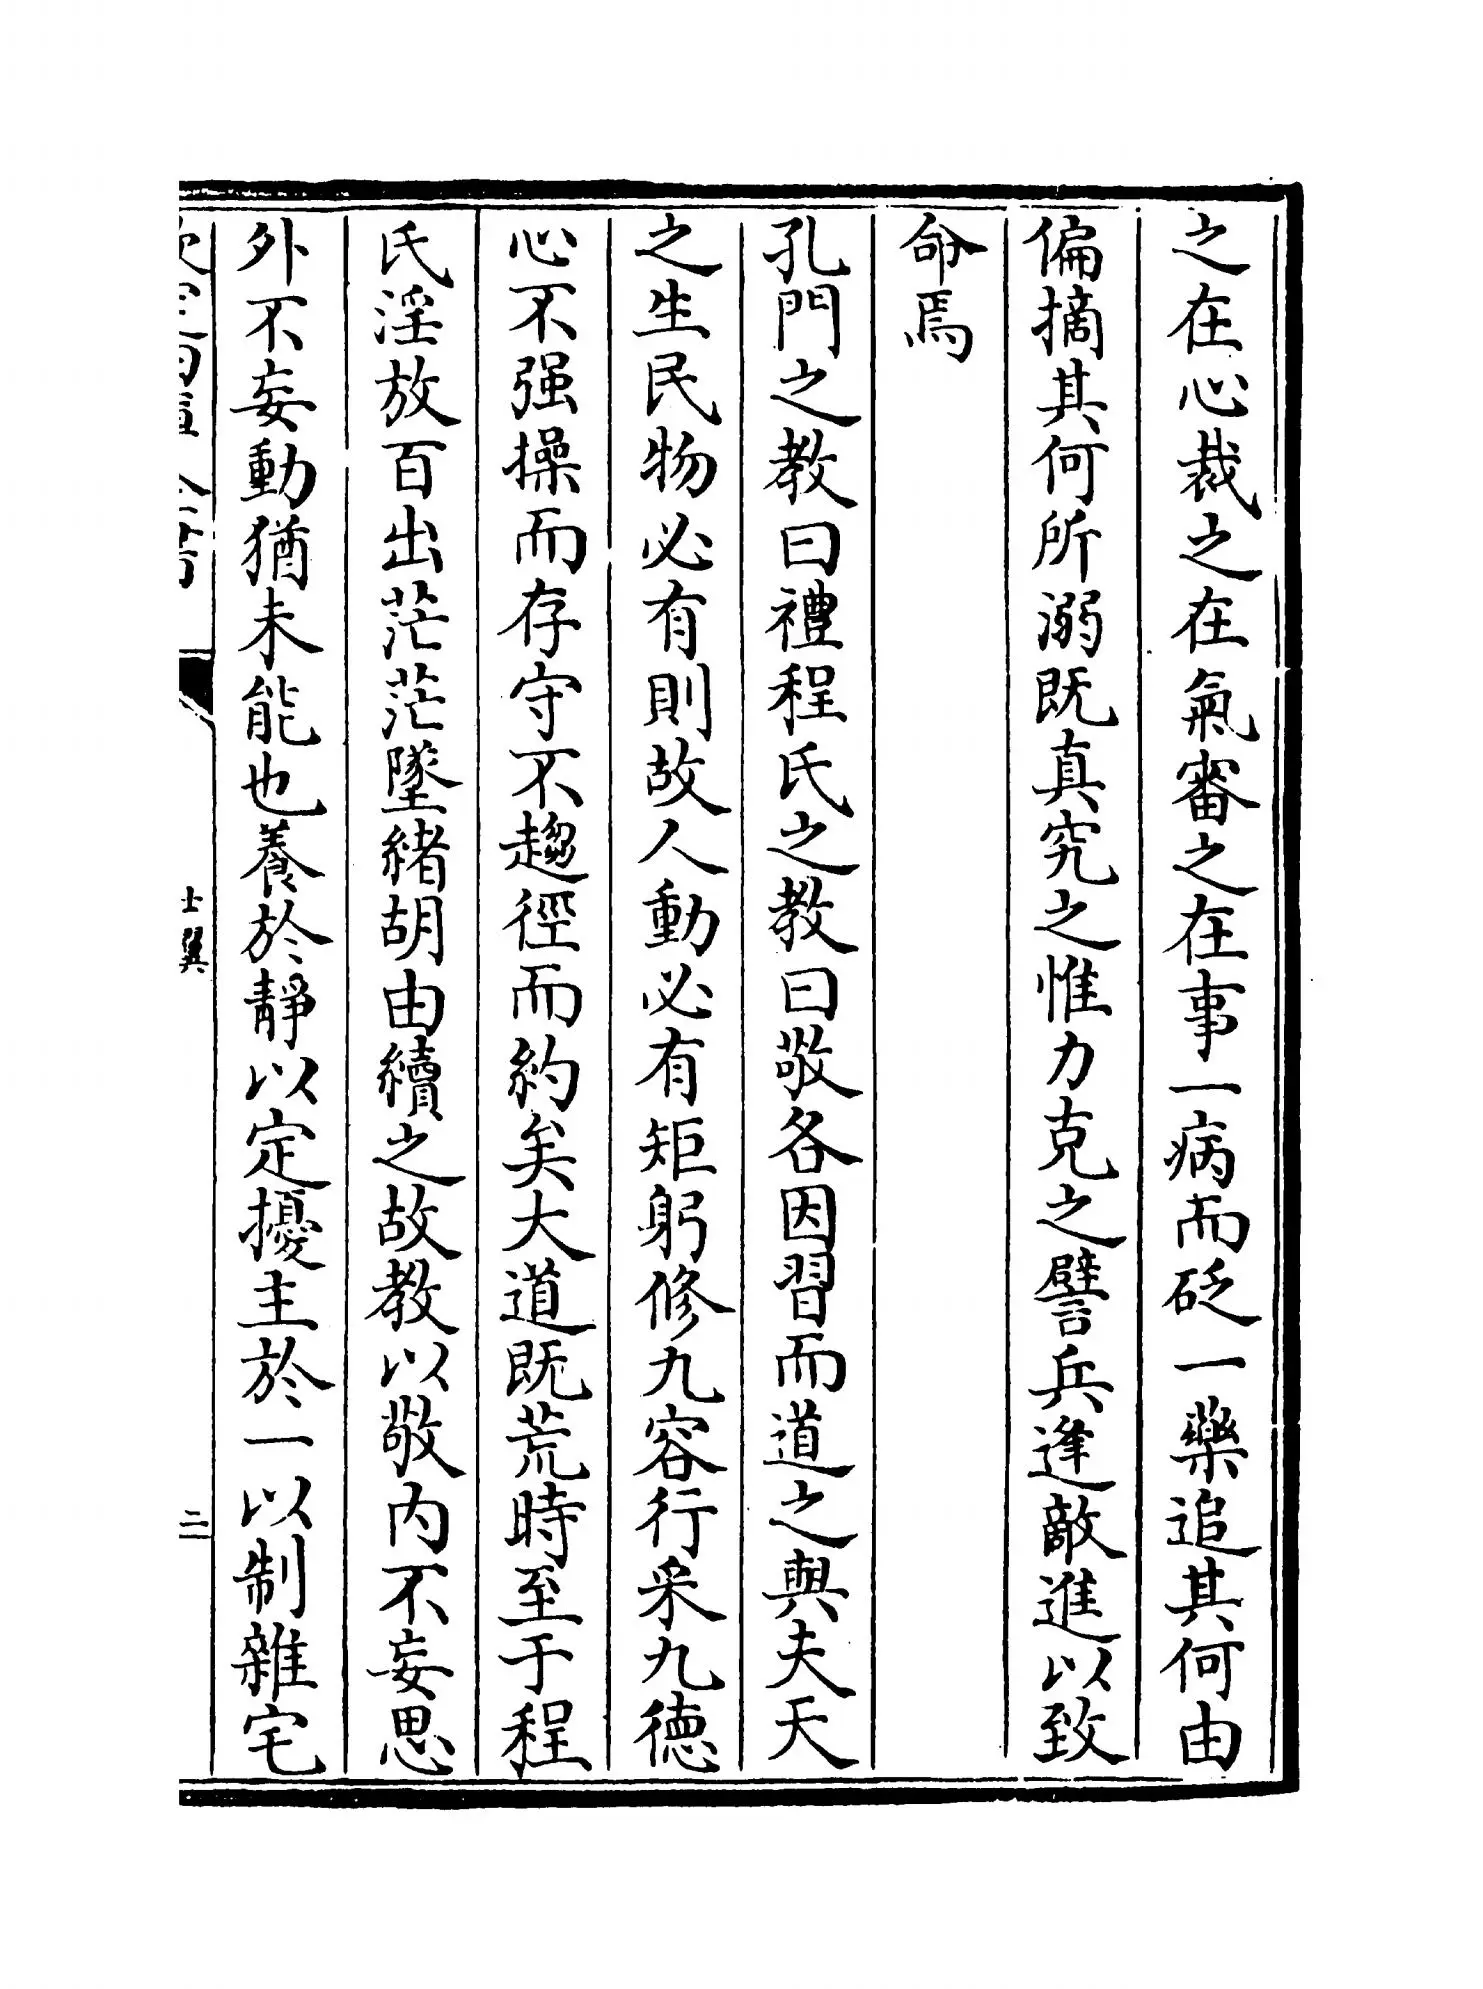 之在心裁之在氣審之在事一病而砭一藥追其何由
偏摘其何所溺既真究之惟力克之譬兵逢敵進以致
命焉
孔門之教曰禮程氏之教曰敬各因習而道之與夫天
之生民物必有則故人動必有矩躬修九容行采九德
心不强操而存守不趨徑而約矣大道既荒時至于程
氏淫放百出茫茫墜緒胡由續之故教以敬内不妄思
外不妄動猶未能也養於靜以定擾主於一以制雜宅
士翼
二